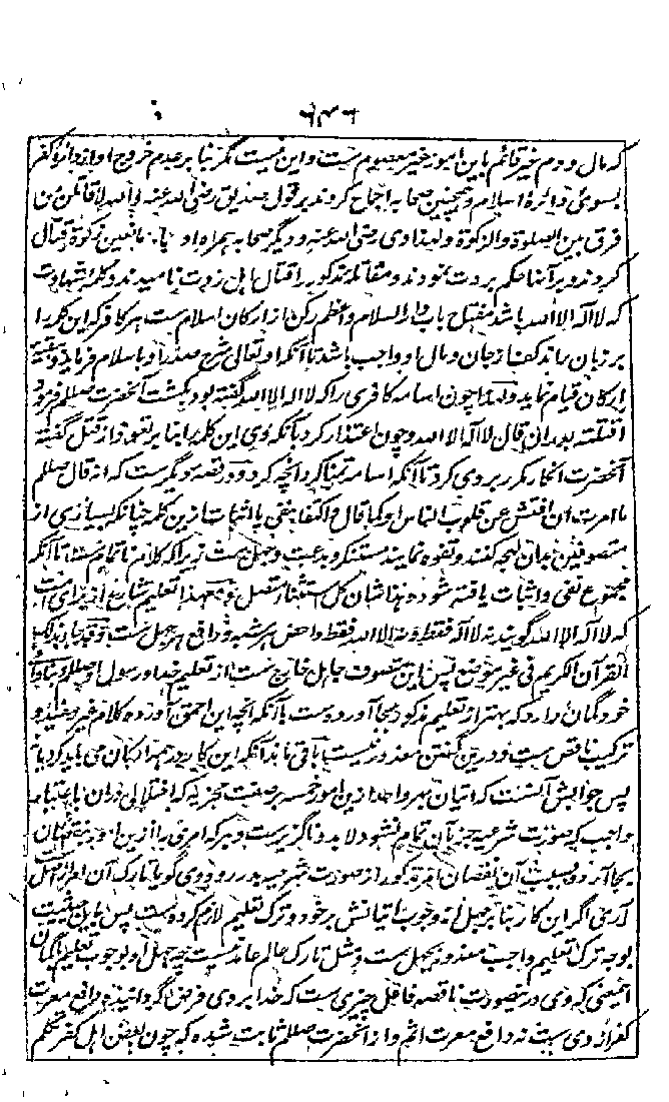 ۶۴۶
که مال و دم غیر قائم باین امور غیر معصوم ست و این نیست مگر بنا بر عدم خروج او از دائرهٔ کفر
بسوی دائرهٔ اسلام و همچنین صحابه اجماع کردند بر قول صدیق رضی الله عنه والله لاقاتلن من
فرق بین الصلوة والزکوة وابتدا وی رضی الله عنه و دیگر صحابه همراه او با مانعین زکوة قتال
کردند و بر آنها حکم بردت نمودند و مقاتله مذکور را قتال اهل ردت نامیدند و کلمهٔ شهادت
که لا اله الا الله باشد مفتاح باب دار السلام و اعظم رکن از ارکان اسلام ست هر کافر که این کلمه را
بر زبان راند کف از جان و مال او واجب باشد تا آنکه او تعالی شرح صدر او باسلام فرماید و ببقیه
ارکان قیام نماید ولهذا چون اسامه کافری را که لا اله الا الله گفته بود بکشت آنحضرت صلعم فرمود
اقتلته بعد ان قال لا اله الا الله و چون اعتذار کرد بآنکه وی این کلمه را بنا بر تعوذ از قتل گفته
آنحضرت انکار مکرر بر وی کرد تا آنکه اسامه تمنا کرد آنچه کرد و در قصه دیگر ست که انه قال صلعم
ما امرت ان افتش عن قلوب الناس او کما قال و اکتفا بنفی یا اثبات ازین کلمه چنانکه بسیاری از
متصوفین بدان لهجه کنند و تفوه نمایند مستنکر و بدعت و جهل ست زیرا که کلام ناتمام ست تا آنکه
مجموع نفی و اثبات یافته شود و هذا شان کل استثناء متصل و مع هذا تعلیم شارع از برای امت
که لا اله الا الله گویند نه لا اله فقط و نه الا الله فقط واحض هر شبهه و دافع هر جهل ست وقد جاء بذلک
القرآن الکریم فی غیر موضع پس این متصوف جاهل خارج ست از تعلیم خدا و رسول او صلعم و بنا بر
خود گمان دارد که بهتر از تعلیم مذکور بجا آورده ست با آنکه آنچه این احمق آورده کلام غیر مفید و
ترکیب ناقص ست و درین گفتن معذور نیست باقی ماند آنکه این کار روز مره ارکان می باید کرد یا نه
پس جوابش آنست که اتیان بهر واحد ازین امور خمسه بر صفت مجزیه که اختلالی دران باعتبار
واجب که صورت شرعیه جز بآن تمام نشود لابد و ناگزیر ست و هر که امری را ازین امور بنقصان
بجا آرد و بسبب آن نقصان امر مذکور از صورت شرعیه بدر رود وی گویا تارک آن امر از اصل ست
آری اگر این کار بنا بر جهل از وجوب اتیانش بر خود و ترک تعلیم لازم کرده ست پس باین حیثیت
بوجه ترک تعلیم واجب معذور بجهل ست و مثل تارک عالم عامد نیست چه جهل او بوجوب تعلیم
بمعنی که وی درین صورت ناقصه فاعل چیزی ست که خدا بر وی فرض گردانیده دافع معرت
کفر از وی ست نه دافع معرت اثم و از آنحضرت صلعم ثابت شده که چون بعض اهل کفر تکلم